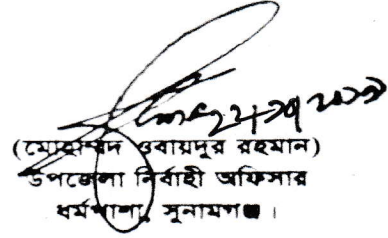 (মোহাম্মদ ওবায়দুর রহমান)
উপজেলা নির্বাহী অফিসার
ধর্মপাশা, সুনামগঞ্জ।